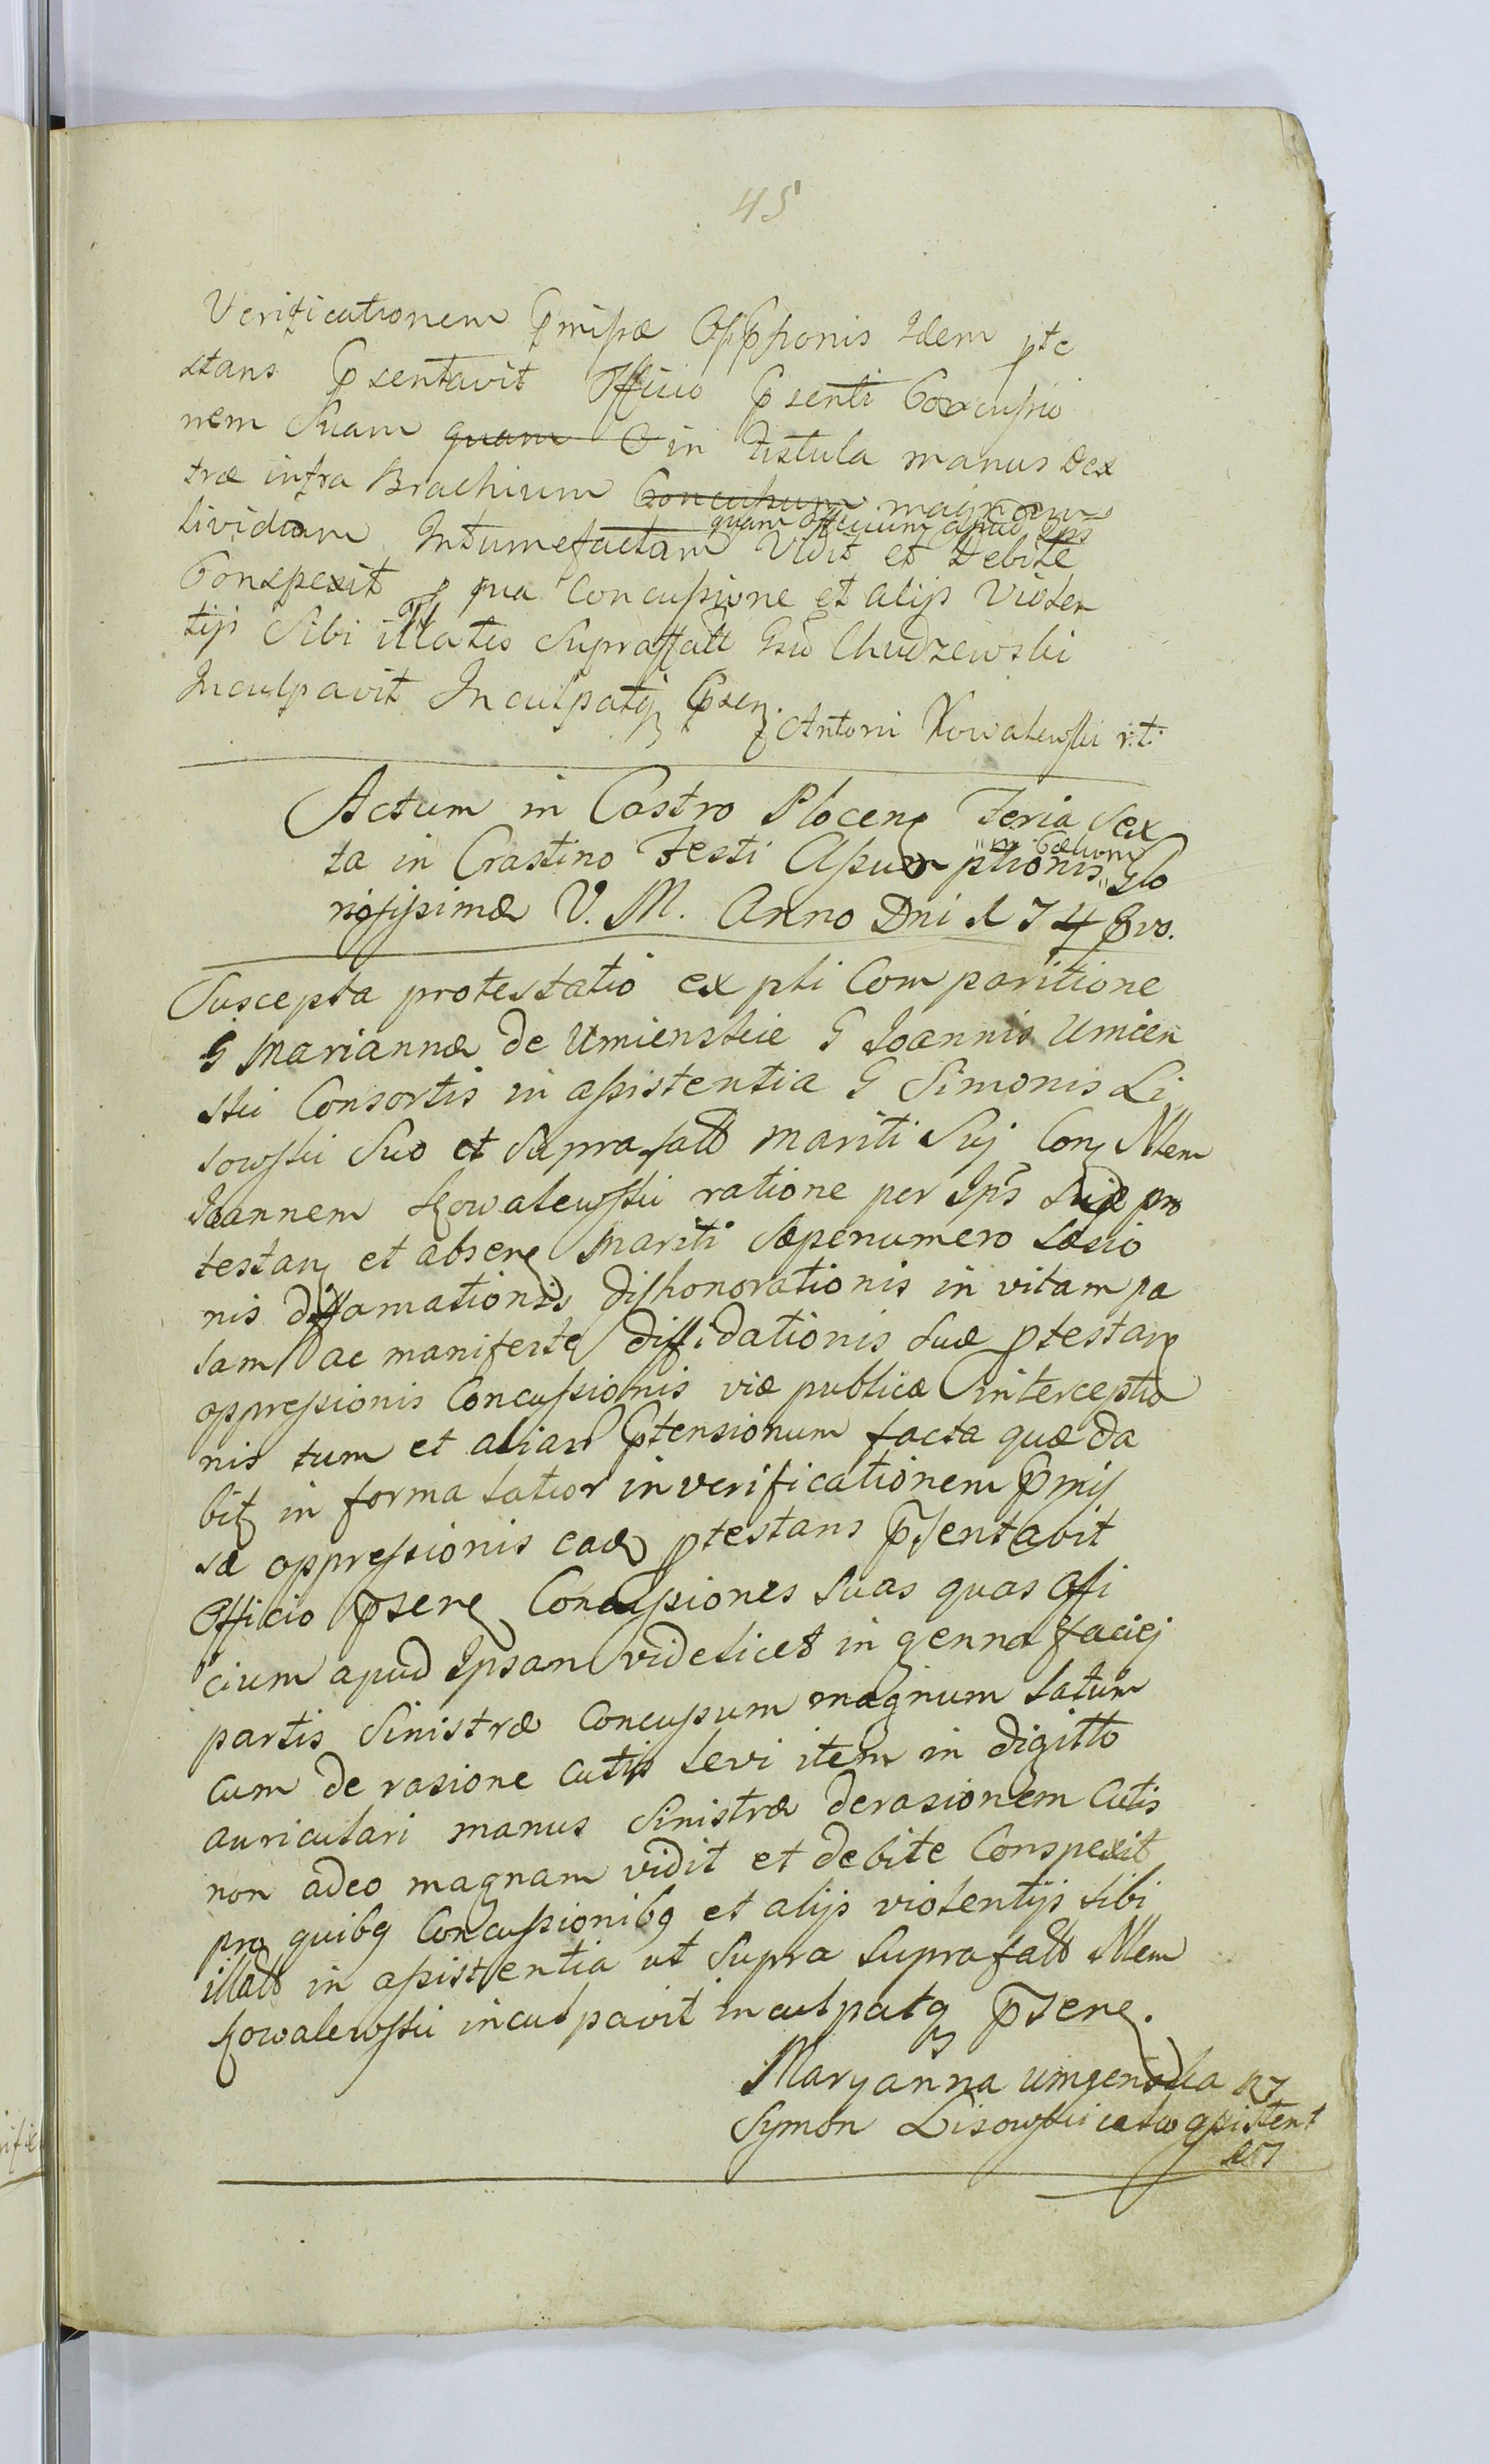 45
Verificationem Pmissæ Oppressionis Idem pte
stans Psentavit Officio Psenti Concussio
nem Suam quam in Fistula manus dex
træ infra Brachium Concussum magnam
quam Officium apud Ips
lividam Intumefactam Vidit et Debite
Conspexit p qua Concussione et alijs Violen
tijs Sibi illatis Supraffatt Gsu Chudzewski
Inculpavit Inculpatq Psen.
Antoni Kowalewski r.t.
Actum in Castro Plocen Feria Sex
ta in Crastino Festi Assumptionis "in Cælum" Glo
riosissimæ V. M. Anno Dni 1748vo.
Suscepta protestatio ex pti Comparitione
G Mariannæ de Umienskie G Joannis Umien
ski Consortis in assistentia G Simonis Li
sowski Suo et Suprafatt mariti Suj Con Nlem
Joannem Kowalewski ratione per Ips Suæ pro
testan et absen Mariti Sæpenumero Læsio
nis diffamationis dishonorationis in vitam pa
lam ac manifeste diffidationis Suæ ptestan
oppressionis Concussionis viæ publicæ interceptio
nis tum et aliar Ptensionum facta quæ da
bit in forma latior in verificationem Pmis
sæ oppressionis ead ptestans Psentavit
Officio Psen Concussiones Suas quas Offi
cium apud Ipsam videlicet in genna faciej
partis Sinistræ Concussum magnum latum
cum de rasione cutis levi item in digitto
auriculari manus Sinistræ derasionem Cutis
non adeo magnam vidit et debite Conspexit
pro quibq Concussionibq et alijs violentijs sibi
illatt in assistentia ut supra suprafatt Nlem
Kowalewski inculpavit inculpatq Psen.
Maryanna umgenska
Symon Lisowski assistent